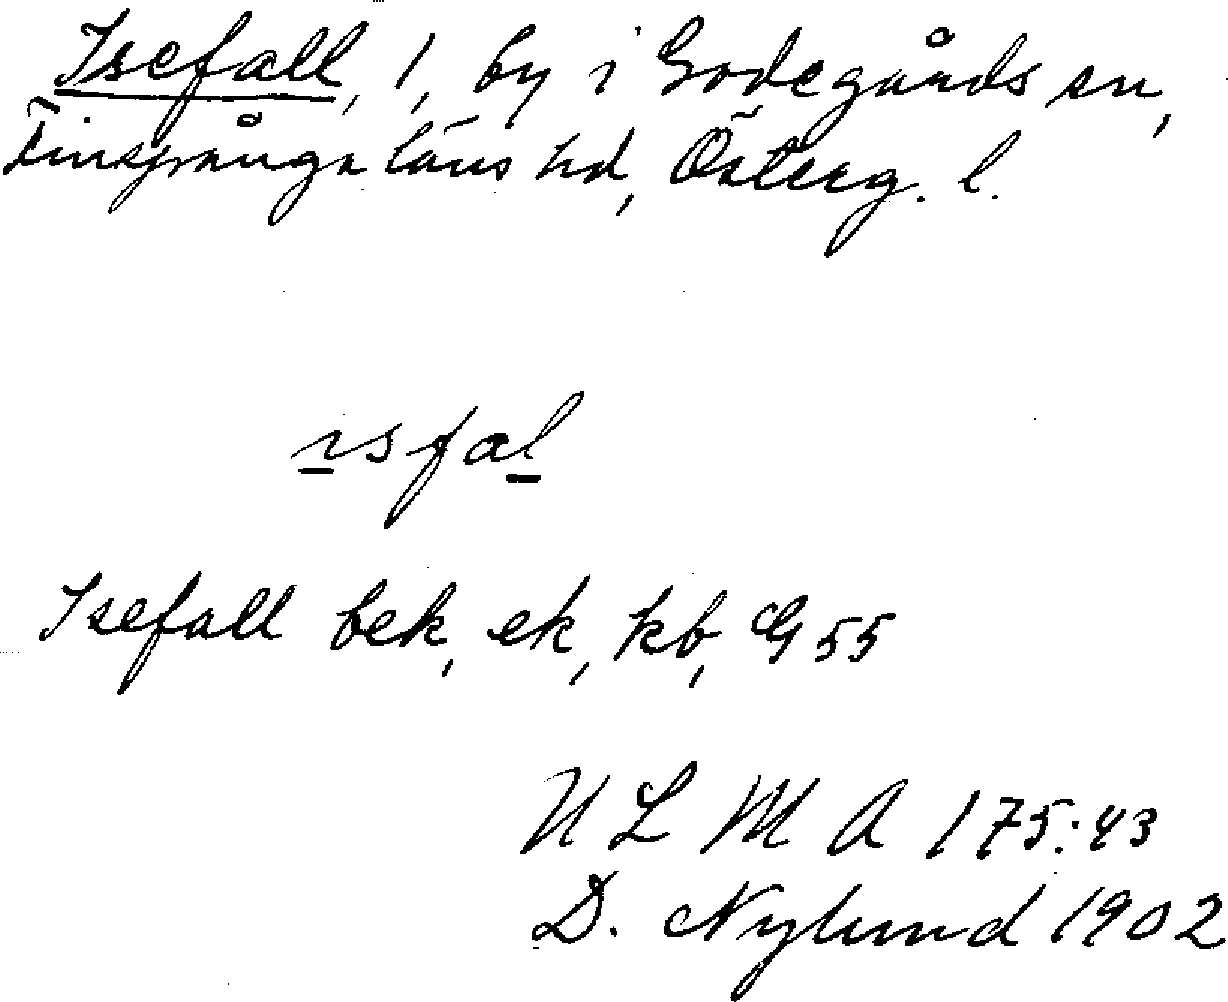 Isefall, 1, by i Godegårds sn,
Finspånga läns hd, Österg. l.
ısfal
Isefall bek, ek, kb, G 55
ULMA 175:43
D. Nylund 1902